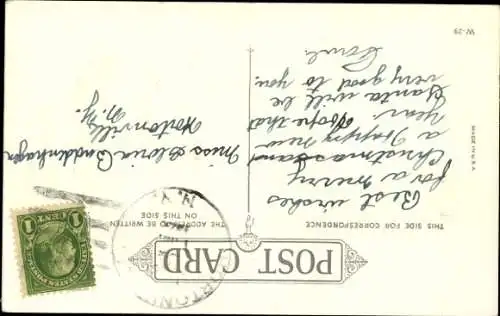 POST CARD
THIS SIDE FOR CORRESPONDENCE
THE ADDRESS TO BE WRITTEN
ON THIS SIDE
Best wishes
for a merry
Christmas and
a Happy new
year. Hope that
Santa will be
very good to you.
Miss Gloria
Hortonville
N.Y.
N.Y.
1 CENT 1
MADE IN U.S.A.
W-29